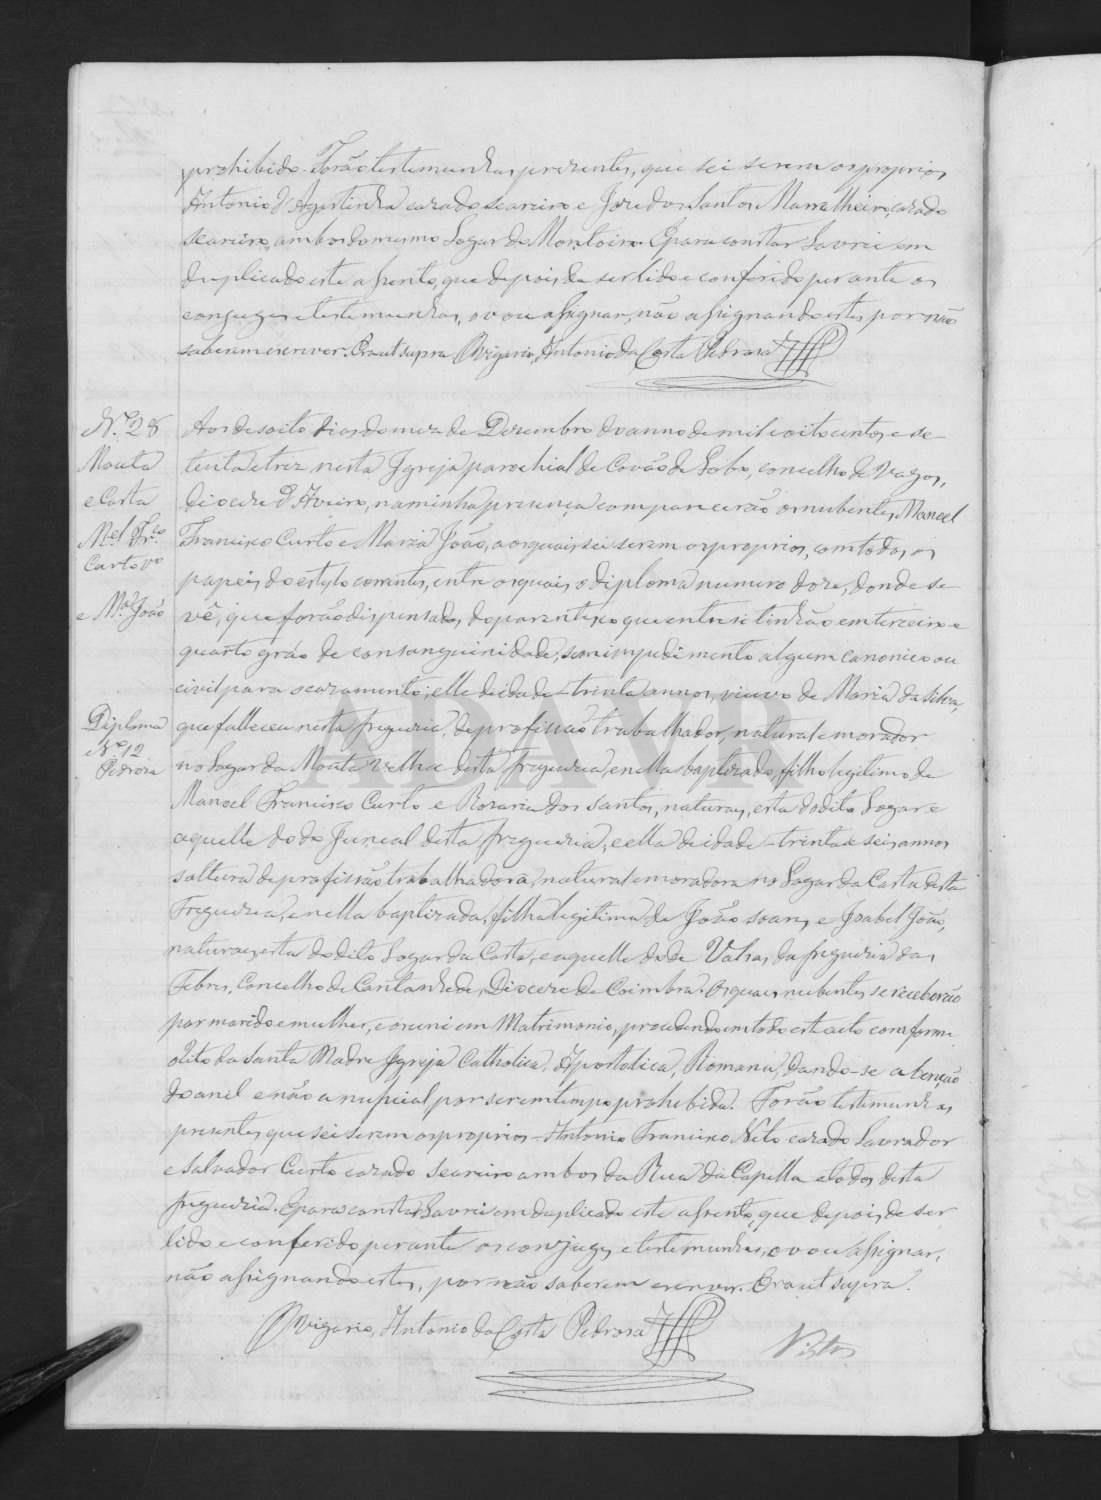 prohibido. Forão testemunhas presentes, que sei serem os proprios
Antonio d'Agostinha casado seareiro e José dos Santos Marralheiro, casado
seareiro, ambos do mesmo Logar do Montoiro. E para constar lavrei em
duplicado este assento, que depois de ser lido e conferido perante os
conjuges e testemunhas, o vou assignar, não assignando estes por não
saberem escrever. Era ut supra. O Vigario, Antonio da Costa Pedrosa
N.º 28
Mouta
e Costa
M.el Fr.co
Curto v.º
e M.ª João
Diploma
N.º 12
Pedrosa
Aos desoito dias do mez de Dezembro do anno de mil e oitocentos e se-
tenta e trez nesta Igreja parochial de Covão do Lobo, concelho de Vagos,
diocese d'Aveiro, na minha presença comparecerão os nubentes, Manoel
Francisco Curto e Maria João, aos quais sei serem os proprios, com todos os
papeis do estylo correntes, entre os quais o diploma numero doze, donde se
vê, que forão dispensados do parentesco que entre si tinhão em terceiro e
quarto gráo de consanguinidade, sem impedimento algum canonico ou
civil para o casamento; elle de idade trinta annos, viuvo de Maria da Silva,
que falleceu nesta freguezia, de profissão trabalhador, natural e morador
no Logar da Mouta velha desta freguezia, e nella baptizado, filho legitimo de
Manoel Francisco Curto e Rozaria dos Santos, naturaes, esta do dito Logar e
aquelle do do Juncal desta freguezia, e ella de idade trinta e seis annos
solteira de profissão trabalhadora, natural e moradora no Logar da Costa desta
Freguezia, e nella baptizada, filha legitima de João Soares e Isabel João,
naturaes, esta do dito Logar da Costa, e aquelle do de da freguezia das
Febres, Concelho de Cantanhede, Diocese de Coimbra. Os quaes nubentes se receberão
por marido e mulher, e os uni em Matrimonio, procedendo em todo este acto comforme
o Rito da Santa Madre Igreja Catholica, Apostolica, Romana, dando-se a benção
do anel e não a nupcial por ser em tempo prohibido. Forão testemunhas
presentes que sei serem os proprios Antonio Francisco Neto casado Lavrador
e Salvador Curto casado seareiro ambos da Rua da Capella e todos desta
freguezia. E para constar Lavrei em duplicado este assento, que depois de ser
lido e conferido perante os conjuges e testemunhas, o vou assignar,
não assignando estes, por não saberem escrever. Era ut supra.
O Vigario, Antonio da Costa Pedrosa
Vistos
ADAVR